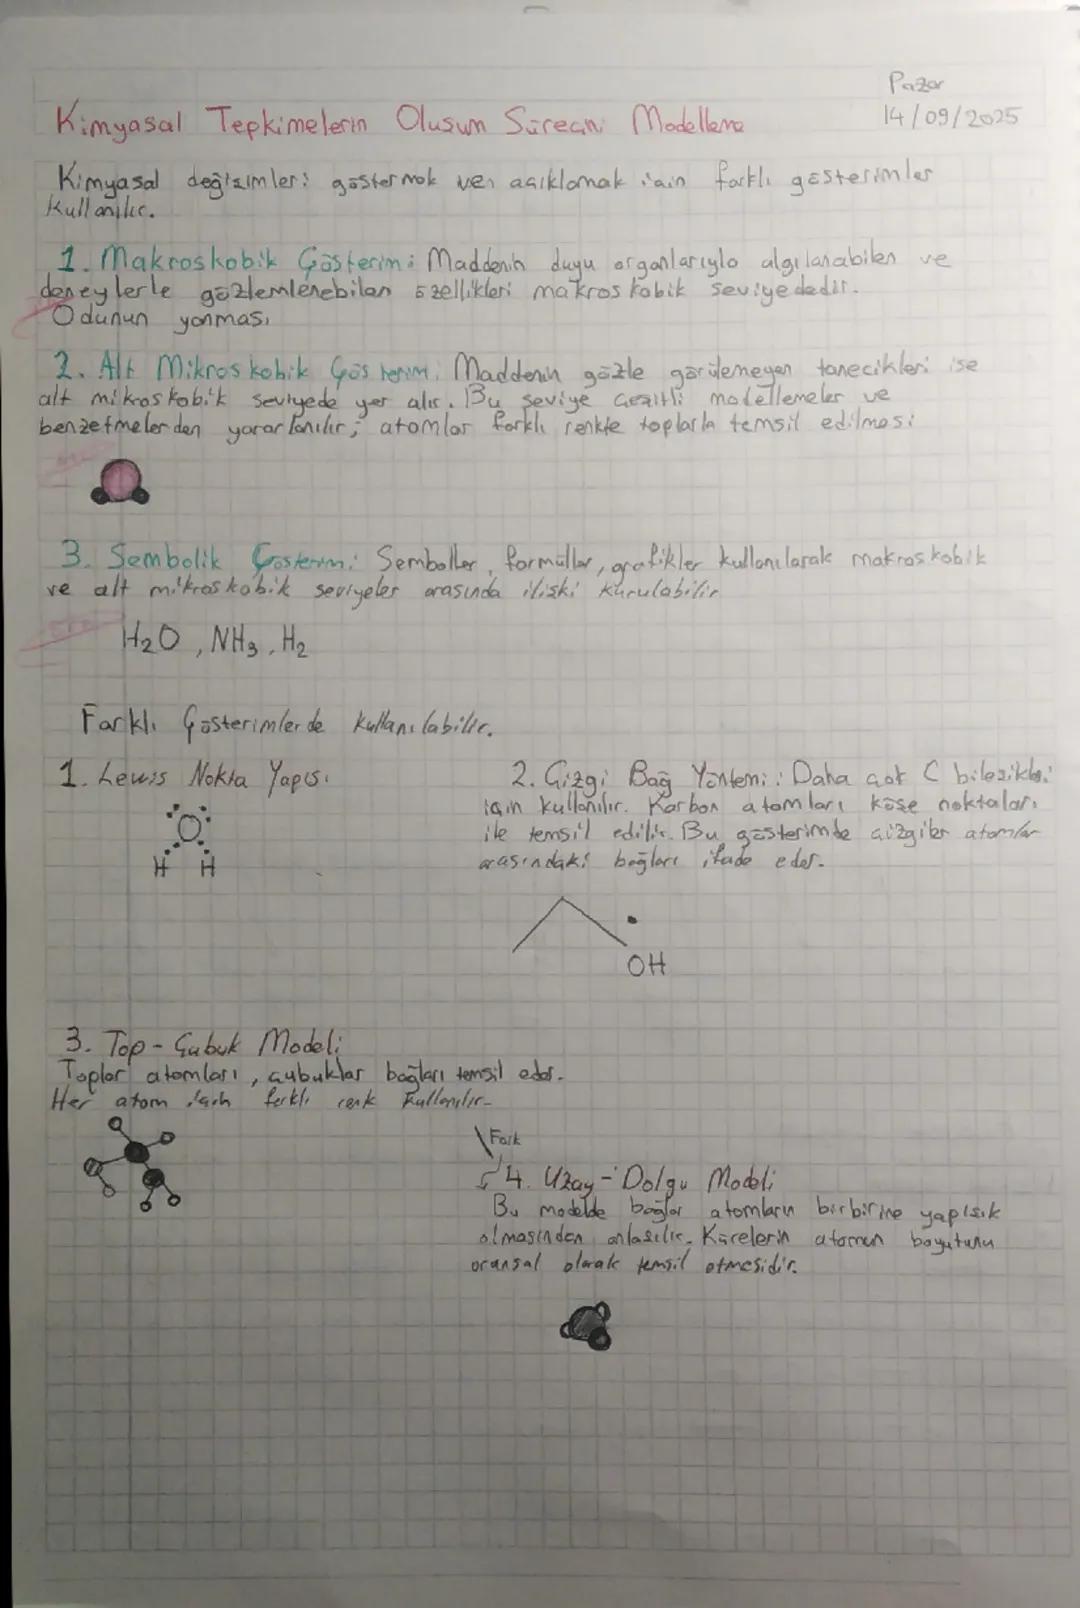 Pazar
14/09/2025
Kimyasal Tepkimelerin Oluşum Sürecini Modelleme
Kimyasal değişimleri göstermek ve açıklamak için farklı gösterimler
kullanılır.
1. Makroskobik Gösterim: Maddenin duyu organlarıyla algılanabilen ve
deneylerle gözlemlenebilen özellikleri makroskobik seviyededir.
Odunun yanması
2. Alt Mikroskobik Gösterim: Maddenin gözle görülemeyen tanecikleri ise
alt mikroskobik seviyede yer alır. Bu seviye çeşitli modellemeler ve
benzetmelerden yararlanılır; atomlar farklı renkte toplarla temsil edilmesi
3. Sembolik Gösterim: Semboller, formüller, grafikler kullanılarak makroskobik
ve alt mikroskobik seviyeler arasında ilişki kurulabilir
H2O, NH3, H2
Farklı Gösterimlerde kullanılabilir.
1. Lewis Nokta Yapısı
O
H H
2. Çizgi Bağ Yöntemi: Daha çok C bileşikleri
için kullanılır. Karbon atomları köşe noktaları
ile temsil edilir. Bu gösterimde çizgiler atomlar
arasındaki bağları ifade eder.
OH
3. Top-Çubuk Modeli
Toplar atomları, çubuklar bağları temsil eder.
Her atom için farklı renk kullanılır.
Fark
4. Uzay-Dolgu Modeli
Bu modelde bağlar atomların birbirine yapışık
olmasından anlaşılır. Kürelerin atomun boyutunu
oransal olarak temsil etmesidir.